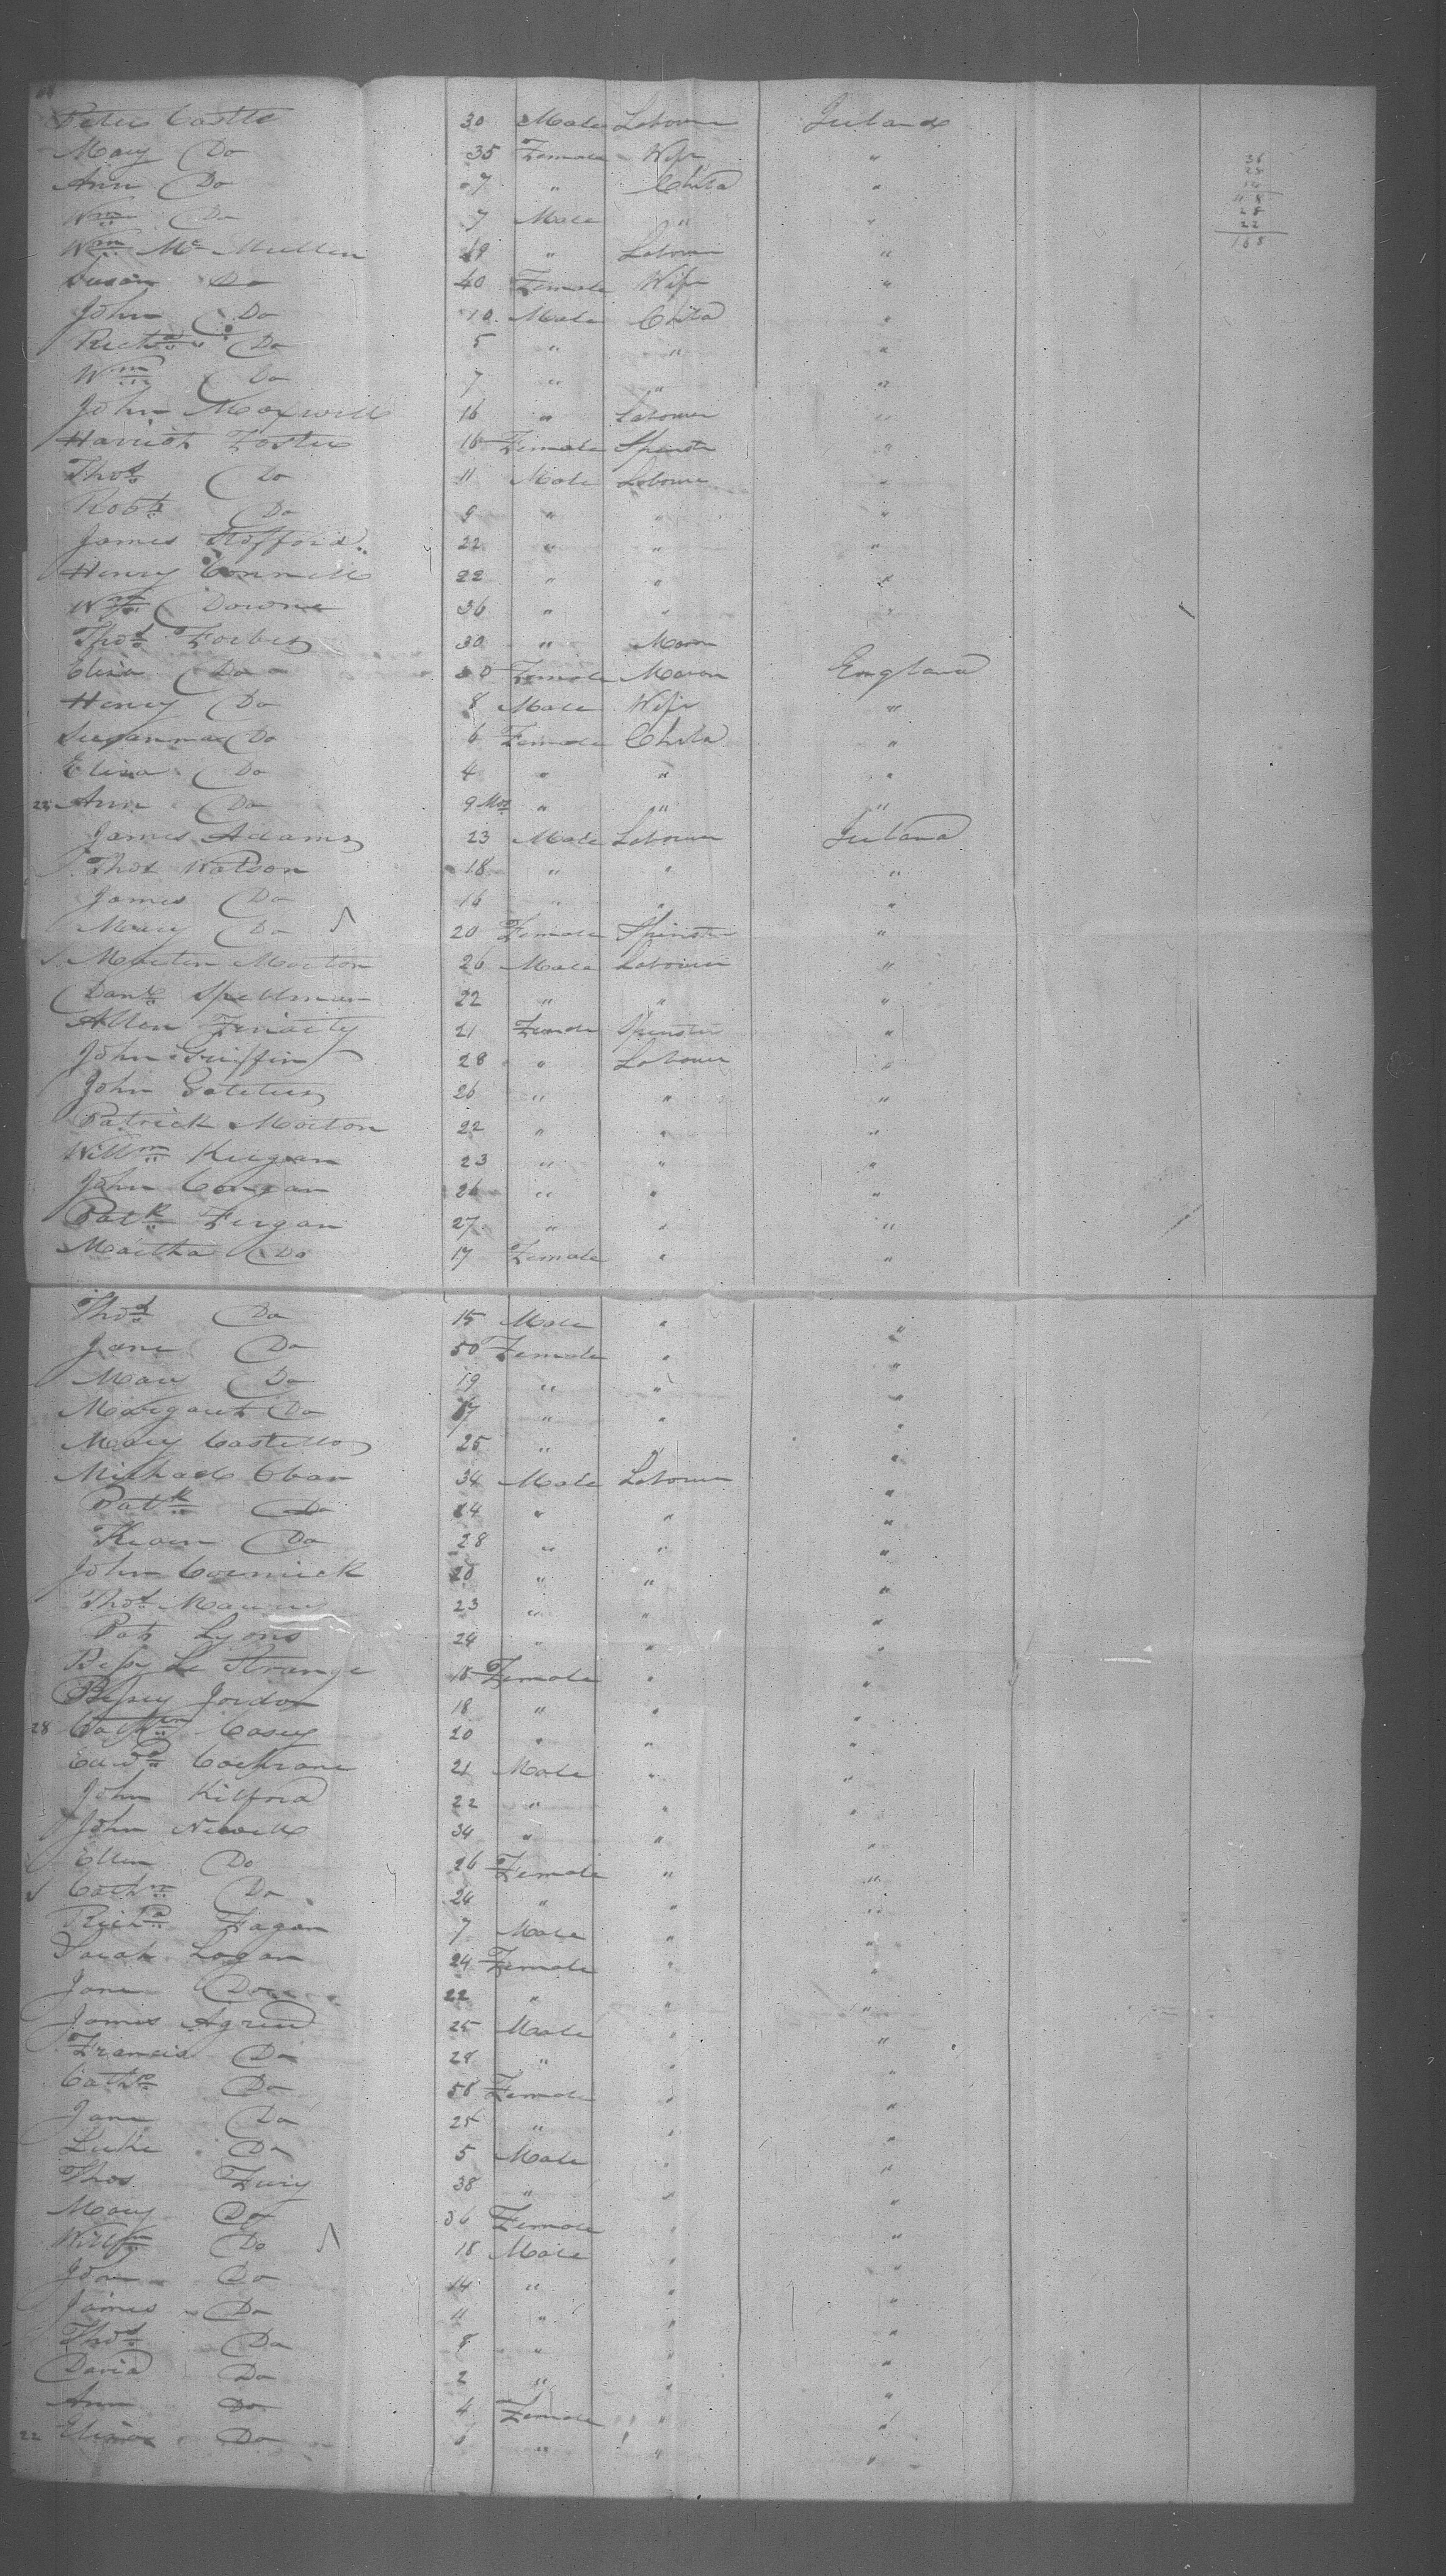 Peter Castle 30 Male Labourer Ireland
Mary Do 35 Female Wife "
Ann Do 7 " Child "
Wm Do 7 Male " "
Wm Mc Mullen 49 " Labourer "
Susan Do 40 Female Wife "
John Do 10 Male Child "
Richd Do 5 " " "
Wm Do 7 " " "
John Maxwell 16 " Labourer "
Harriot Foster 16 Female Spinster "
Thos Do 11 Male Labourer "
Robt Do 9 " " "
James Stafford 22 " " "
Henry Connell 22 " " "
Wm Downe 36 " " "
Thos Forbes 30 " Mason
Eliza Do 30 Female Mason England
Henry Do 8 Male Wife "
Susanna Do 6 Female Child "
Eliza Do 4 " " "
22 Ann Do 9 Mos " " "
James Adams 23 Male Labourer Ireland
Thos Watson 18 " " "
James Do 16 " " "
Mary Do 20 Female Spinster "
Martin Morton 26 Male Labourer "
Danl Spellman 22 " " "
Allen Finaty 21 Female Spinster "
John Griffin 28 " Labourer "
John 26 " " "
Patrick Morton 22 " " "
Willm Keegan 23 " " "
John Congan 26 " " "
Patk Fergan 27 " " "
Martha Do 17 Female " "
Thos Do 15 Male " "
Jane Do 50 Female " "
Mary Do 19 " " "
Margaret Do 17 " " "
Mary Castello 25 " "
Michael Oban 34 Male Labourer "
Patk Do 24 " " "
Do 28 " " "
John Cormick 20 " " "
Thos 23 " " "
Pat Lyons 24 " " "
Bessy Le Strange 18 Female " "
Bessey Jordon 18 " " "
28 Cathrn Casey 20 " " "
Edwd Cochrane 21 Male " "
John Kilford 22 " " "
John Newell 34 " " "
Ellen Do 26 Female " "
Cathn Do 24 " " "
Richd Fagan 7 Male " "
Sarah Logan 24 Female " "
Jane Do 22 " " "
James Agnew 25 Male " "
Francis Do 28 " " "
Cathe Do 58 Female " "
Jane Do 25 " " "
Luke Do 5 Male " "
Thos Fury 38 " " "
Mary Do 36 Female " "
Willm Do 18 Male " "
John Do 14 " " "
James Do 11 " " "
Thos Do 8 " " "
David Do 2 " " "
Ann Do 4 Female " "
22 Do 6 " " "
36
28
118
28
22
168